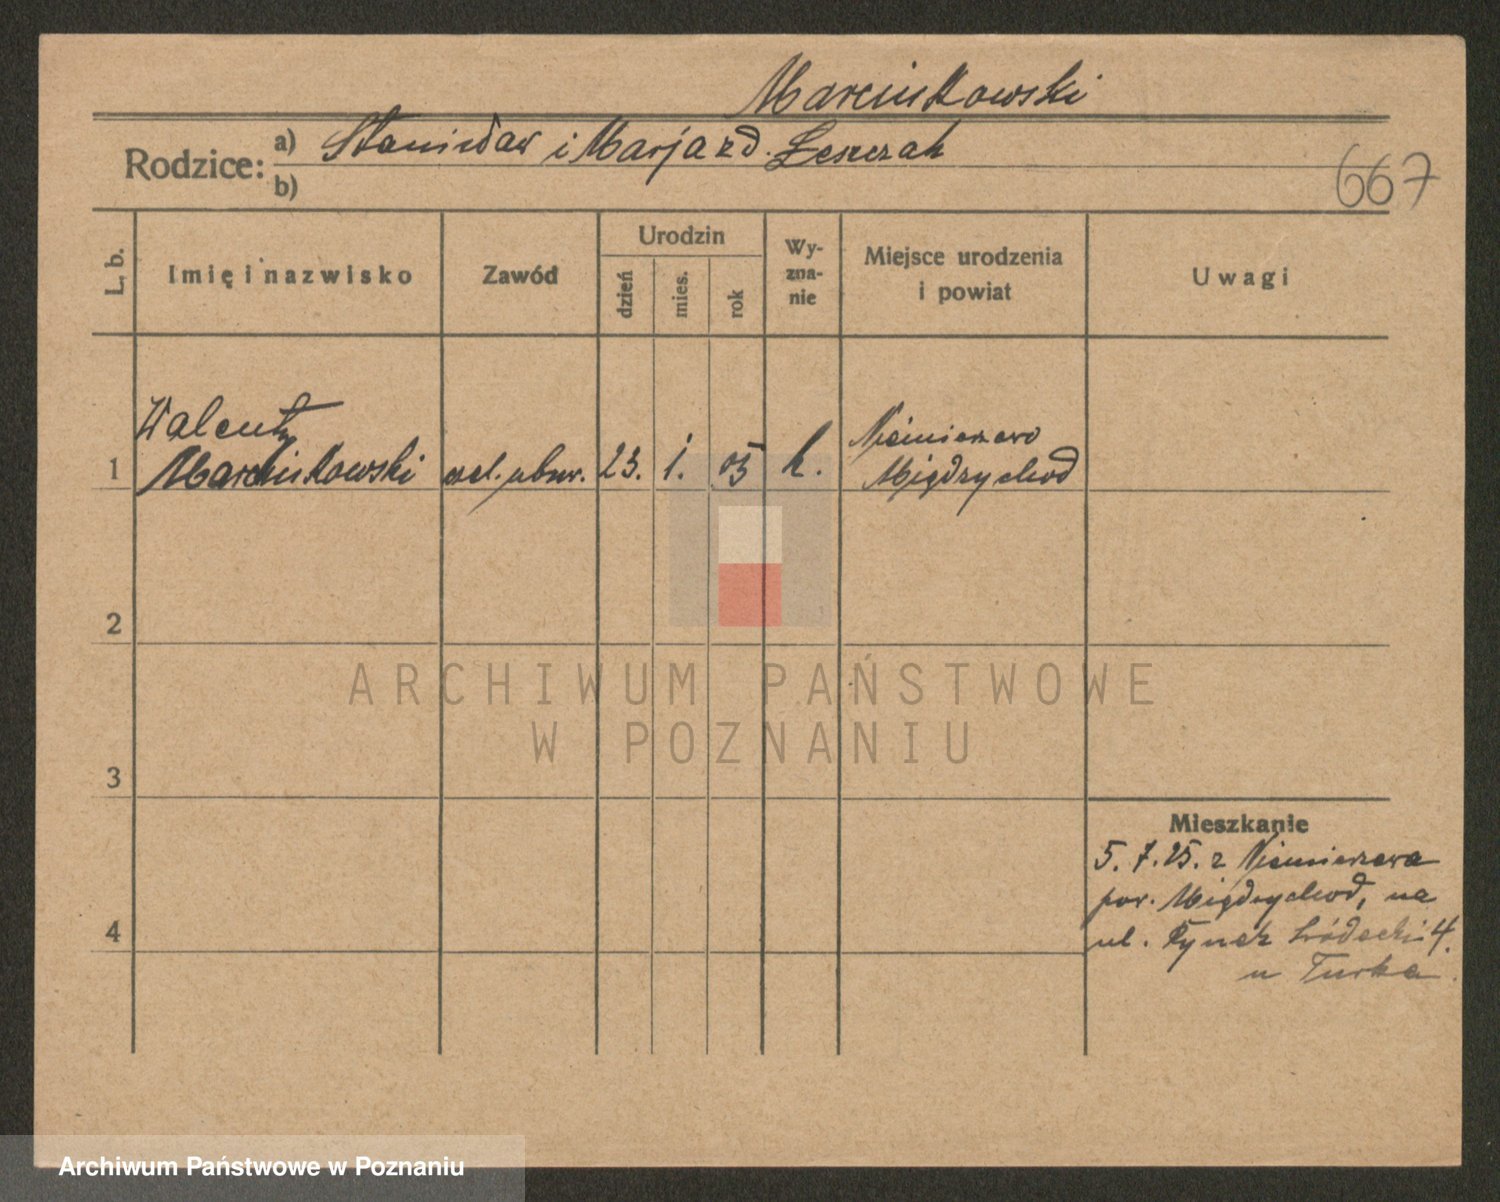 Marcinkowski
Rodzice: a) Stanisław i Marja zd. Leszczak
b)
667
L. b.
Imię i nazwisko
Zawód
Urodzin
dzień
mies.
rok
Wy-
zna-
nie
Miejsce urodzenia
i powiat
Uwagi
Walenty
1 Marcinkowski
23. 1. 05 k.
Niemierzewo
Międzychod
2
3
4
Mieszkanie
5. 7. 25. z Niemierzewa
pow. Międzychod, na
ul. Rynek Śródecki 4.
u Turka.
ARCHIWUM PAŃSTWOWE
W POZNANIU
Archiwum Państwowe w Poznaniu